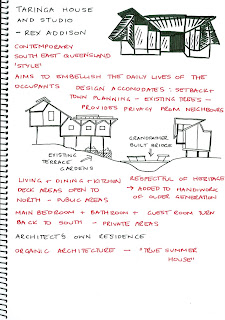 TARINGA HOUSE
AND STUDIO
- REX ADDISON
CONTEMPORARY
SOUTH EAST QUEENSLAND
'STYLE'
AIMS TO EMBELLISH THE DAILY LIVES OF THE
OCCUPANTS
DESIGN ACCOMODATES: SETBACKS
TOWN PLANNING - EXISTING TREES -
PROVIDES PRIVACY FROM NEIGHBOURS
GRANDFATHER
BUILT BRIDGE
EXISTING
TERRACE
GARDENS
LIVING + DINING + KITCHEN
DECK AREAS OPEN TO
NORTH - PUBLIC AREAS
RESPECTFUL OF HERITAGE
→ ADDED TO HANDIWORK
OF OLDER GENERATION
MAIN BEDROOM + BATHROOM + GUEST ROOM TURN
BACK TO SOUTH - PRIVATE AREAS
ARCHITECT'S OWN RESIDENCE
ORGANIC ARCHITECTURE → "TRUE SUMMER
HOUSE"